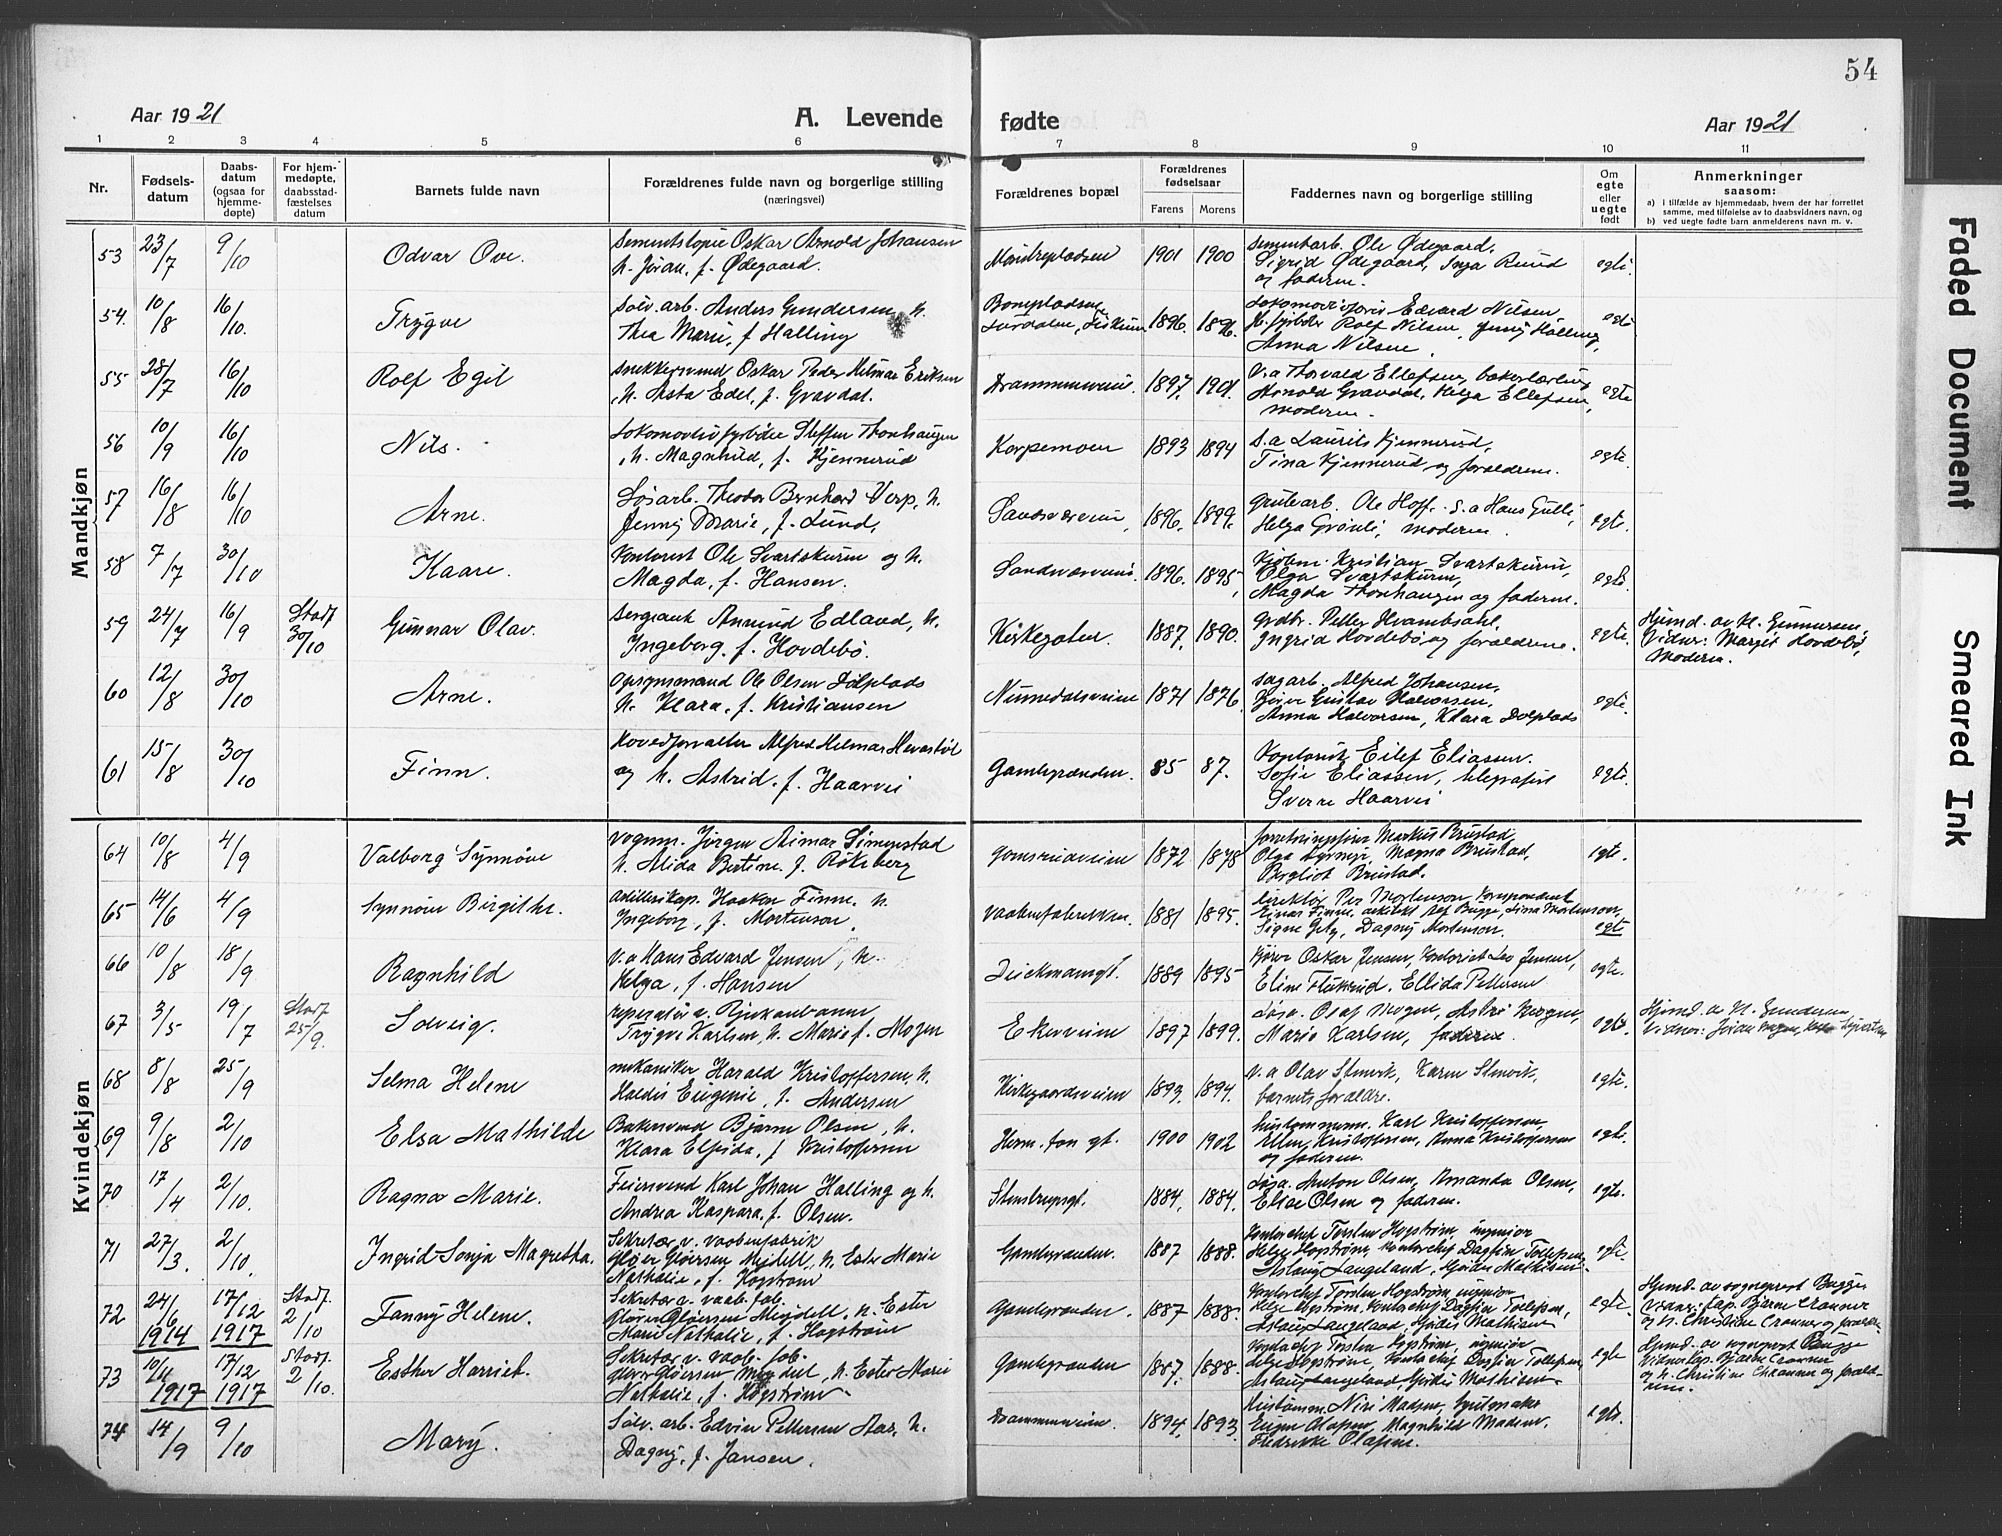 54
Aar 1921
A. Levende
fødte
Aar 1921
1 2 3 4 5 6 7 8 9 10 11
Nr.
Fødsels-
datum
Daabs-
datum
(ogsaa for
hjemme-
døpte)
For hjem-
medøpte,
daabsstad-
fæstelses
datum
Barnets fulde navn
Forældrenes fulde navn og borgerlige stilling
(næringsvei)
Forældrenes bopæl
Forældrenes
fødselsaar
Farens
Morens
Faddernes navn og borgerlige stilling
Om
egte
eller
uegte
født
Anmerkninger
saasom:
a) i tilfælde av hjemmedaab, hvem der har forrettet
samme, med tilføielse av to daabsvidners navn, og
b) ved uegte fødte barn anmelderens navn m. v.
Mandkjøn
53 23/7 9/10 Odvar Ove. Sementstøpie Oskar Arnold Johansen
h. Jøran, f. Ødegaard. 1901 1900 Sementarb. Ole Ødegaard,
Sigrid Ødegaard, Inga Ruud
og faderen. egte.
54. 10/8 16/10. Trygve Sølv. arb. Anders Gundersen, h.
Thea Marie, f. Halling 1896. 1896. Edvard Nilsen,
Rolf Nilsen, Jenny Halling,
Anna Nilsen. egte
55 28/7 16/10 Rolf Egil Snekkersvend Oskar Peder Hilmar Eriksen
h. Asta Edel, f. Gravdal. Drammensveien. 1897. 1901. V.a Thorvald Ellefsen, bakerlærling
Arnold Gravdal, Helga Ellefsen,
moderen. egte
56 10/9 16/10 Nils. Lokomotivfyrbøter Steffen Thonhaugen
h. Magnhild, f. Kjennerud Korpemoen 1893 1894 S.a Laurits Kjennerud,
Tina Kjennerud og forældrene. egte.
57 16/8 16/10 Arne. Løsarb. Theodor Bernhard Verp, h.
Jenny Marie, f. Lund. 1896. 1899. Grubearb. Ole Hoff. S.a Hans Gulli,
Helga Grønli, moderen. egte.
58 7/7 30/10 Kaare. Kontorist Ole Svartskuren og h.
Magda, f. Hansen. Sandsværveien. 1896. 1895, Kjøbm. Kristian Svartskuren,
Olga Svartskuren,
Magda Thonhaugen og faderen. egte.
59 24/7 16/9 Stadf. 30/10 Gunnar Olav. Sergeant Anund Edland, h.
Ingeborg, f. Hovdebø. Kirkegaten. 1887. 1890. Grdbr. Petter Hvambsahl,
Ingrid Hovdebø og forældrene. egte. Hjemd. av H. Gunnersen,
Vidner: Margit Hovdebø,
Moderen.
60 12/8 30/10 Arne. Opsynsmand Ole Olsen Dølplads
h. Klara, f. Kristiansen Numedalsveien 1871 1876. Sagarb. Alfred Johansen,
Gustav Halvorsen,
Anna Halvorsen, Klara Dølplads egte.
61 15/8 30/10 Finn. Hovedforvalter Alfred Helmar
og h. Astrid. f. Haarvei Gamlegrænden. 85 87. Kontorist Eilef Eliassen.
Sofie Eliassen, telegrafist
Sverre Haarvei egte.
Kvindekjøn
64 10/8 4/9 Valborg Synnøve Vognm. Jørgen Aimar Simenstad
h. Alida Bertine f. Røkeberg Gomsrudveien 1872 1878 Forretningsfører Markus Brustad,
Olga Myrmyr, Magna Brustad,
Bergliot Brustad. egte.
65 14/6 4/9 Synnøve Birgithe. Artillerikap. Haakon Finne. h.
Ingeborg, f. Mortenson. Vaabenfabrikken. 1881 1895. Direktør Per Mortenson, Korrespondent
Einar Finne, arkitekt Bugge, Lina Mortenson,
Signe Getz, Dagny Mortenson. egte
66 10/8 18/9 Ragnhild V.a Hans Edvard Jensen, h.
Helga, f. Hansen Dyckmansgt. 1889 1895 Kjører Oskar Jensen, Kontorist Leo Jensen,
Eline Flikerud. Ellida Pettersen egte.
67 3/5 19/7 Stadf. 25/9. Solveig. Reparatør v. Rjukanbanen
Trygve Karlsen, h. Marie f. Mogen Ekerveien 1897 1899. Olaf Mogen, Astri Mogen,
Marie Karlsen, faderen. egte. Hjemd. av H. Gundersen
Vidner:
68 8/8 25/9 Selma Helene Mekaniker Harald Kristoffersen, h.
Haldis Eugenie, f. Andersen Kirkegaardsveien 1893. 1894. V.a Olav Stenvik, Karen Stenvik,
barnets forældre. egte.
69 9/8 2/10 Elsa Mathilde Bakersvend Bjarne Olsen, h.
Klara Elfrida, f. Kristoffersen Herm. fos gt. 1900 1902 Hustømmerm. Karl Kristoffersen,
Ellen Kristoffersen, Anna Kristoffersen
og faderen. egte.
70 17/4 2/10. Ragna Marie. Feiersvend Karl Johan Halling og h.
Andrea Kaspara, f. Olsen. Stenstrupsgt. 1884, 1884, Løsa. Anton Olsen, Amanda Olsen,
Elsa Olsen og faderen. egte.
71 27/3. 2/10. Ingrid Sonja Magretha. Sekretær v. vaabenfabrik
Gløer Gløersen Mejdell, h. Ester Marie
Nathalie, f. Hogstrøm Gamlegranden. 1887 1888. Kontorchef Torsten Hogstrøm, ingeniør
Helge Hogstrøm, Kontorchef Dagfin Tollefsen,
Aslaug Langeland, Gjødis Mathisen. egte
72 24/6 1914 17/12 1917 Stadf. 2/10 Fanny Helene. Sekretær v. vaab. fab.
Gløer Gløersen Mejdell, h. Ester
Marie Nathalie, f. Hogstrøm Gamlegranden 1887 1888. Kontorchef Torsten Hogstrøm, ingeniør
Helge Hogstrøm, Kontorchef Dagfin Tollefsen,
Aslaug Langeland, Gjødis Mathisen egte. Hjemd. av sogneprest Bugge
Vidner: Kap. Bjarne Cranner
og h. Christine Cranner og foreldre
73 10/11 1917 17/12 1917 Stadf. 2/10. Esther Harriet. Sekretær v. vaab. fab.
Gløer Gløersen Mejdel, h. Ester Marie
Nathalie, f. Hogstrøm. Gamlegranden 1887. 1888. Kontorchef Torsten Hogstrøm, ingeniør
Helge Hogstrøm, Kontorchef Dagfin Tollefsen
Aslaug Langeland, Gjødis Mathisen. egte Hjemd. av sogneprest Bugge
Vidner: Kap. Bjarne Cranner
og h. Christine Cranner og foreld-
rene.
74 14/9 9/10 Mary. Sølv. arb. Edvin Pettersen Aas, h.
Dagny, f. Jansen. Drammensveien. 1894. 1893. Hustømm. Nils Madsen,
Olafsen, Magnhild Madsen,
Fredrikke Olafsen. egte.
Faded Document
Smeared Ink